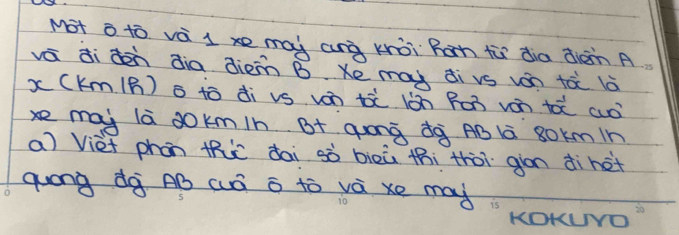 Một ô tô và 1 xe máy cùng khởi hành từ địa điểm A
và đi đến địa điểm B. Xe máy đi vs vận tốc là
x (km/h) ô tô đi vs vận tốc lớn hơn vận tốc của
xe máy là 20 km/h Bt quãng đg AB là 80 km/h
a) Viết phân thức đại số biểu thị thời gian đi hết
quãng đg AB của ô tô và xe máy
0 5 10 15 20
KOKUYO
25